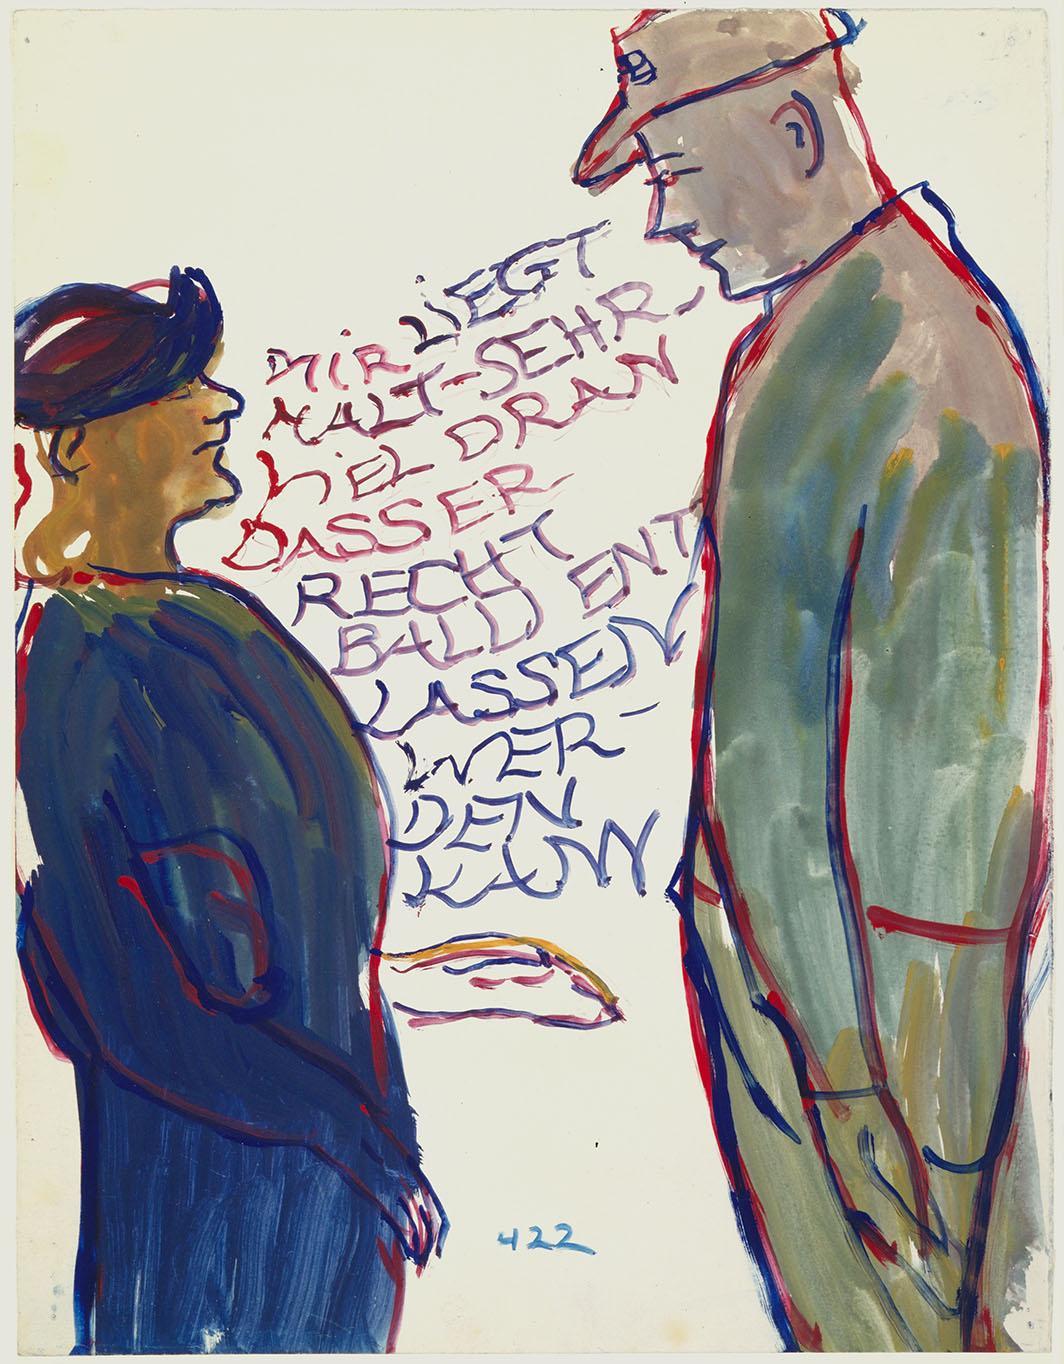 MIR LIEGT
HALT-SEHR-
VIEL DRAN
DASS ER-
RECHT
BALD ENT
LASSEN
WER-
DEN
KANN
422